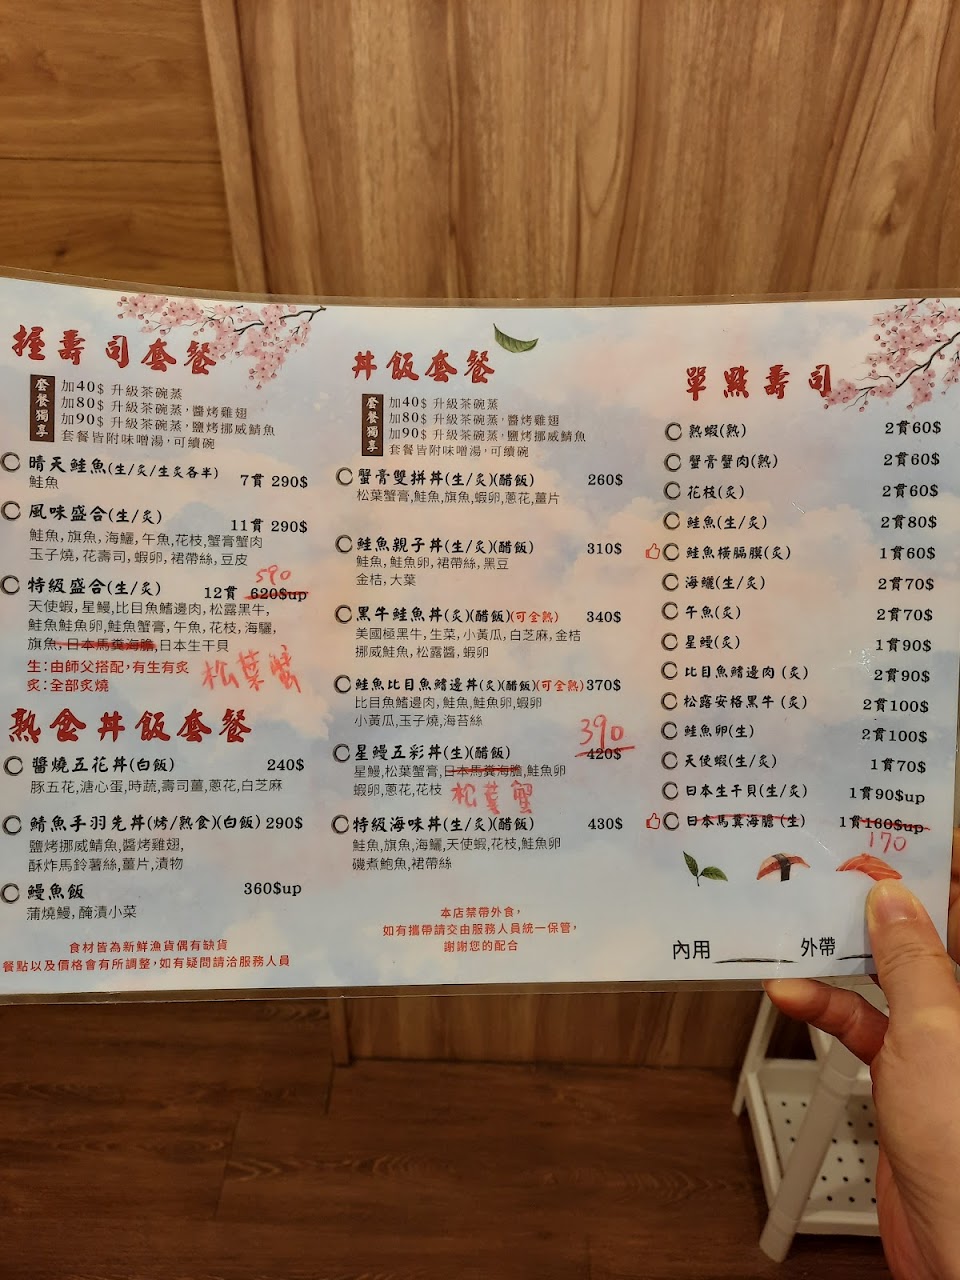 握壽司套餐
套餐獨享
加40$ 升級茶碗蒸
加80$ 升級茶碗蒸,醬烤雞翅
加90$ 升級茶碗蒸,鹽烤挪威鯖魚
套餐皆附味噌湯,可續碗
晴天鮭魚(生/炙/生炙各半) 7貫 290$
鮭魚
風味盛合(生/炙) 11貫 290$
鮭魚,旗魚,海鱺,午魚,花枝,蟹膏蟹肉
玉子燒,花壽司,蝦卵,裙帶絲,豆皮
特級盛合(生/炙) 12貫 620$up 590
天使蝦,星鰻,比目魚鰭邊肉,松露黑牛,
鮭魚鮭魚卵,鮭魚蟹膏,午魚,花枝,海鱺,
旗魚,日本馬糞海膽,日本生干貝
松葉蟹
生:由師父搭配,有生有炙
炙:全部炙燒
熟食丼飯套餐
醬燒五花丼(白飯) 240$
豚五花,溏心蛋,時蔬,壽司薑,蔥花,白芝麻
鯖魚手羽先丼(烤/熟食)(白飯) 290$
鹽烤挪威鯖魚,醬烤雞翅,
酥炸馬鈴薯絲,薑片,漬物
鰻魚飯 360$up
蒲燒鰻,醃漬小菜
食材皆為新鮮漁貨偶有缺貨
餐點以及價格會有所調整,如有疑問請洽服務人員
丼飯套餐
套餐獨享
加40$ 升級茶碗蒸
加80$ 升級茶碗蒸,醬烤雞翅
加90$ 升級茶碗蒸,鹽烤挪威鯖魚
套餐皆附味噌湯,可續碗
蟹膏雙拼丼(生/炙)(醋飯) 260$
松葉蟹膏,鮭魚,旗魚,蝦卵,蔥花,薑片
鮭魚親子丼(生/炙)(醋飯) 310$
鮭魚,鮭魚卵,裙帶絲,黑豆
金桔,大葉
黑牛鮭魚丼(炙)(醋飯)(可全熟) 340$
美國極黑牛,生菜,小黃瓜,白芝麻,金桔
挪威鮭魚,松露醬,蝦卵
鮭魚比目魚鰭邊丼(炙)(醋飯)(可全熟) 370$
比目魚鰭邊肉,鮭魚,鮭魚卵,蝦卵
小黃瓜,玉子燒,海苔絲
390
星鰻五彩丼(生)(醋飯) 420$
星鰻,松葉蟹膏,日本馬糞海膽,鮭魚卵
蝦卵,蔥花,花枝 松葉蟹
特級海味丼(生/炙)(醋飯) 430$
鮭魚,旗魚,海鱺,天使蝦,花枝,鮭魚卵
磯煮鮑魚,裙帶絲
本店禁帶外食,
如有攜帶請交由服務人員統一保管,
謝謝您的配合
單點壽司
熟蝦(熟) 2貫60$
蟹膏蟹肉(熟) 2貫60$
花枝(炙) 2貫60$
鮭魚(生/炙) 2貫80$
鮭魚橫膈膜(炙) 1貫60$
海鱺(生/炙) 2貫70$
午魚(炙) 2貫70$
星鰻(炙) 1貫90$
比目魚鰭邊肉(炙) 2貫90$
松露安格黑牛(炙) 2貫100$
鮭魚卵(生) 2貫100$
天使蝦(生/炙) 1貫70$
日本生干貝(生/炙) 1貫90$up
日本馬糞海膽(生) 1貫160$up
170
內用 外帶